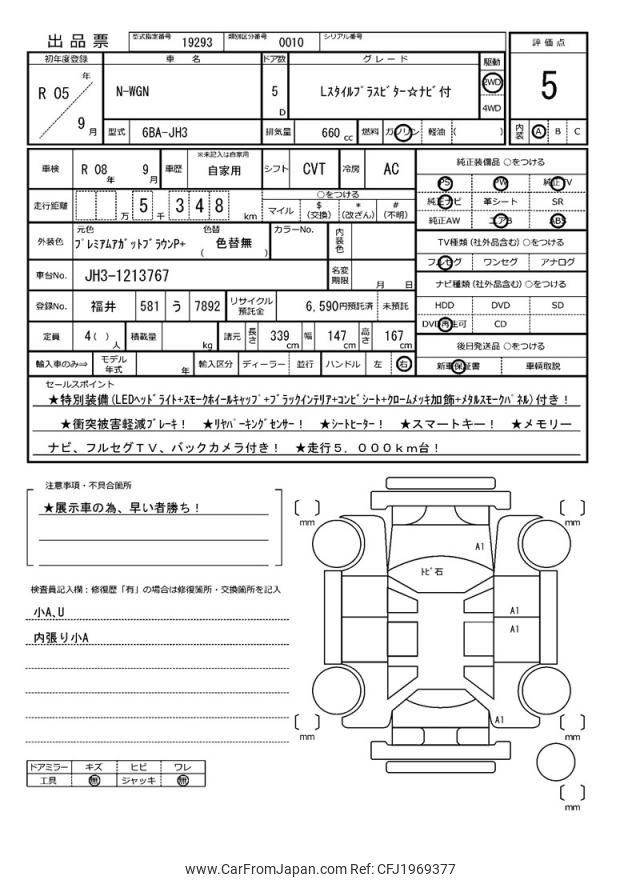 出品票 型式指定番号 19293 類別区分番号 0010 シリアル番号
初年度登録 車名 ドア数 グレード 駆動 評価点
R 05 年 9 月 N-WGN 5 D Lｽﾀｲﾙﾌﾟﾗｽﾋﾞﾀｰ☆ﾅﾋﾞ付 2WD 4WD 5
型式 6BA-JH3 排気量 660 cc 燃料 ガソリン 軽油 ( ) 内装 A B C
車検 R 08 年 9 月 車歴 ※未記入は自家用 自家用 シフト CVT 冷房 AC
純正装備品 ○をつける
PS PW 純正TV
走行距離 万 5 千 3 4 8 km ○をつける マイル $ (交換) * (改ざん) # (不明)
純正ナビ 革シート SR
純正AW エアB ABS
外装色 元色 ﾌﾟﾚﾐｱﾑｱｶﾞｯﾄﾌﾞﾗｳﾝP+ 色替 ( 色替無 ) カラーNo. 内装色
TV種類 (社外品含む) ○をつける
フルセグ ワンセグ アナログ
車台No. JH3-1213767 名変期限 月 日
ナビ種類 (社外品含む) ○をつける
登録No. 福井 581 う 7892 リサイクル預託金 6,590円預託済 未預託
HDD DVD SD
DVD再生可 CD
定員 4 ( ) 人 積載量 kg 諸元 長さ 339 cm 幅 147 cm 高さ 167 cm
後日発送品 ○をつける
輸入車のみ⇒ モデル年式 年 輸入区分 ディーラー 並行 ハンドル 左 右
新車保証書 車輌取説
セールスポイント
★特別装備(LEDﾍｯﾄﾞﾗｲﾄ+ｽﾓｰｸﾎｲｰﾙｷｬｯﾌﾟ+ﾌﾞﾗｯｸｲﾝﾃﾘｱ+ｺﾝﾋﾞｼｰﾄ+ｸﾛｰﾑﾒｯｷ加飾+ﾒﾀﾙｽﾓｰｸﾊﾟﾈﾙ)付き！
★衝突被害軽減ﾌﾞﾚｰｷ！ ★ﾘﾔﾊﾟｰｷﾝｸﾞｾﾝｻｰ！ ★ｼｰﾄﾋｰﾀｰ！ ★スマートキー！ ★メモリー
ナビ、フルセグＴＶ、バックカメラ付き！ ★走行５，０００ｋｍ台！
注意事項・不具合箇所
★展示車の為、早い者勝ち！
検査員記入欄：修復歴「有」の場合は修復箇所・交換箇所を記入
小A,U
内張り小A
mm mm
A1
ﾄﾋﾞ石
A1
A1
A1
mm mm
mm
ドアミラー キズ ヒビ ワレ
工具 無 ジャッキ 無
www.CarFromJapan.com Ref: CFJ1969377